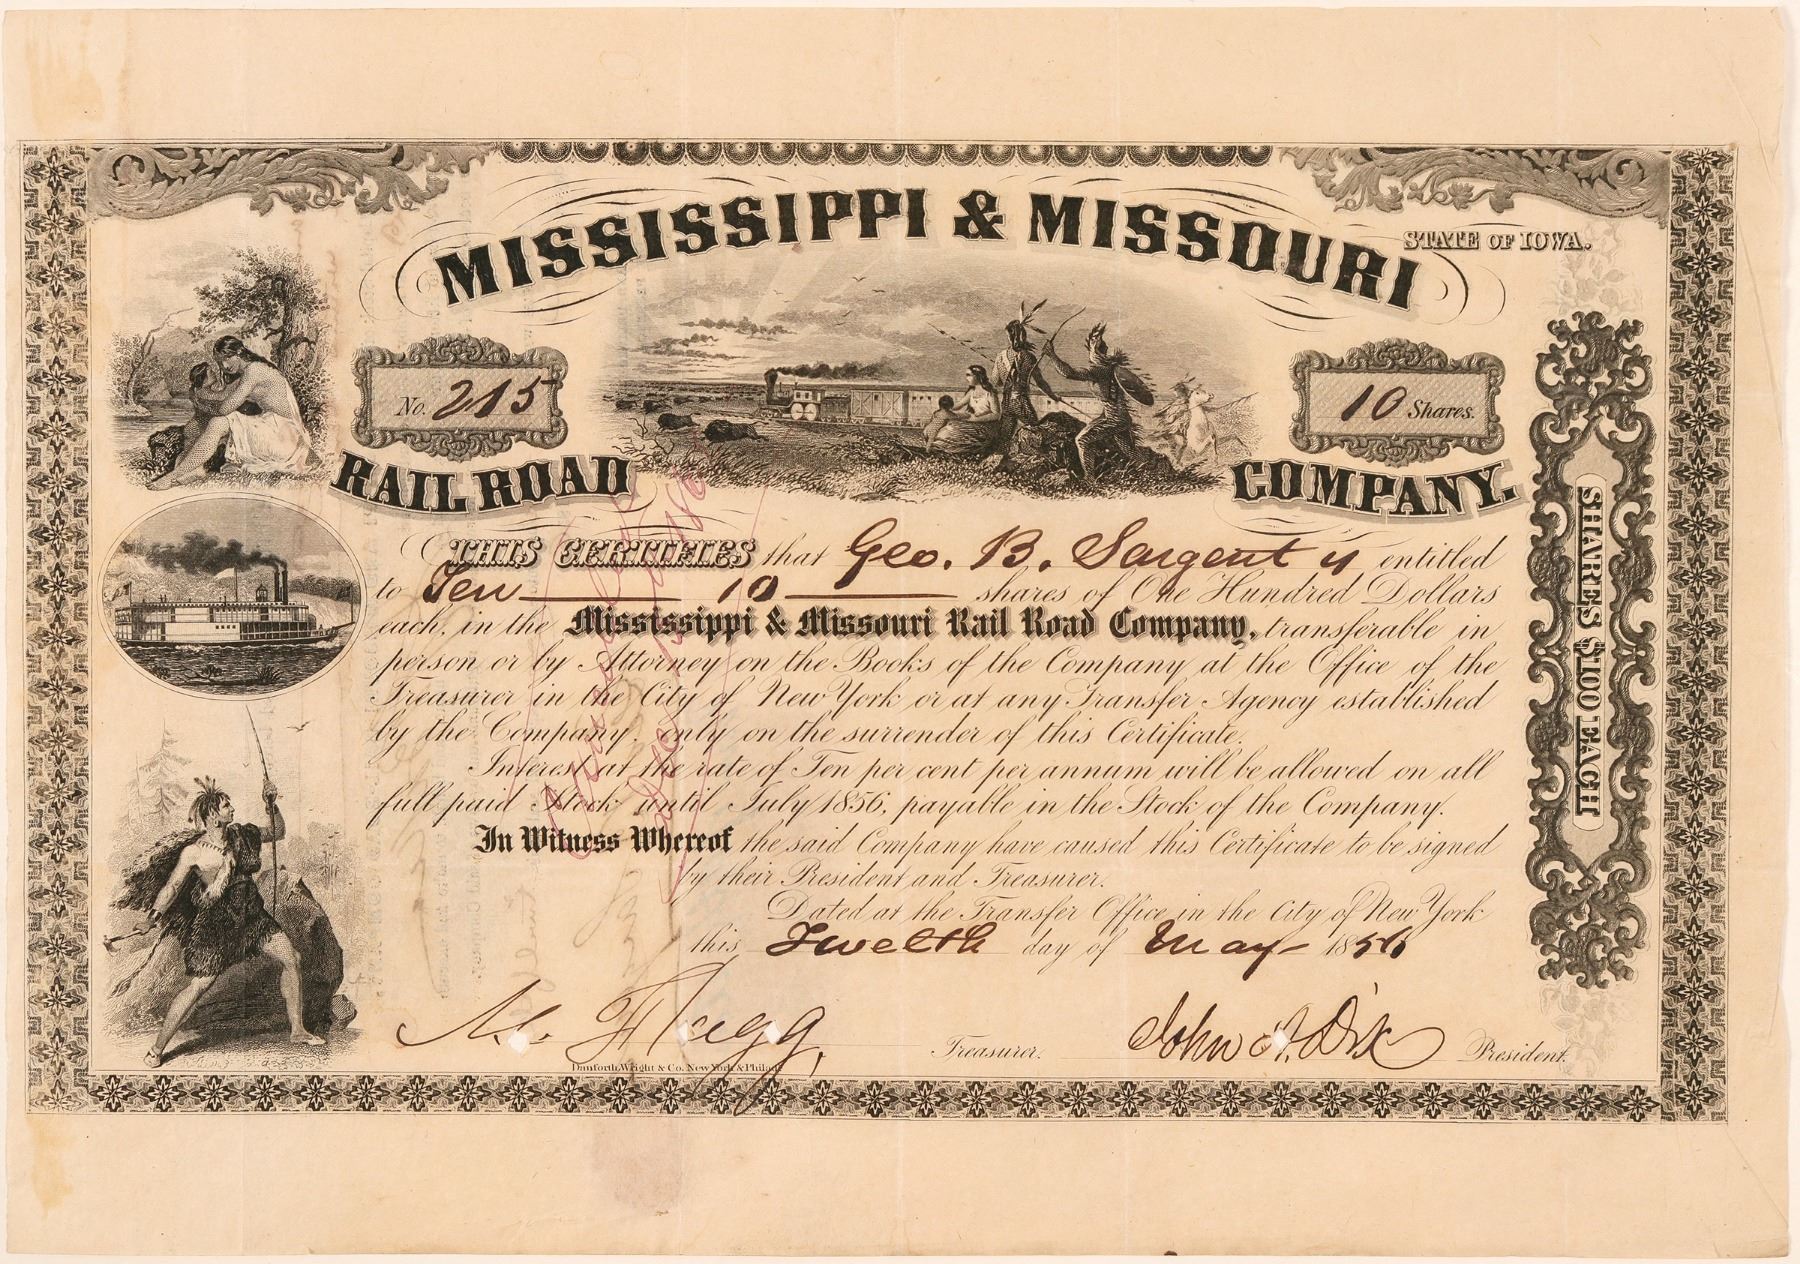 MISSISSIPPI & MISSOURI
STATE OF IOWA.
No. 215
10 Shares.
RAIL ROAD COMPANY.
THIS CERTIFIES that Geo. B. Sargent is entitled
to Ten 10 shares of One Hundred Dollars
each, in the Mississippi & Missouri Rail Road Company, transferable in
person or by Attorney on the Books of the Company at the Office of the
Treasurer in the City of New York or at any Transfer Agency established
by the Company, only on the surrender of this Certificate.
Interest at the rate of Ten per cent per annum will be allowed on all
full paid Stock until July 1856, payable in the Stock of the Company.
In Witness Whereof the said Company have caused this Certificate to be signed
by their President and Treasurer.
Dated at the Transfer Office in the City of New York
this Twelth day of May 1856
Flagg, Treasurer. John A. Dix President.
Danforth, Wright & Co. New York & Philada
SHARES $100 EACH
Cancelled